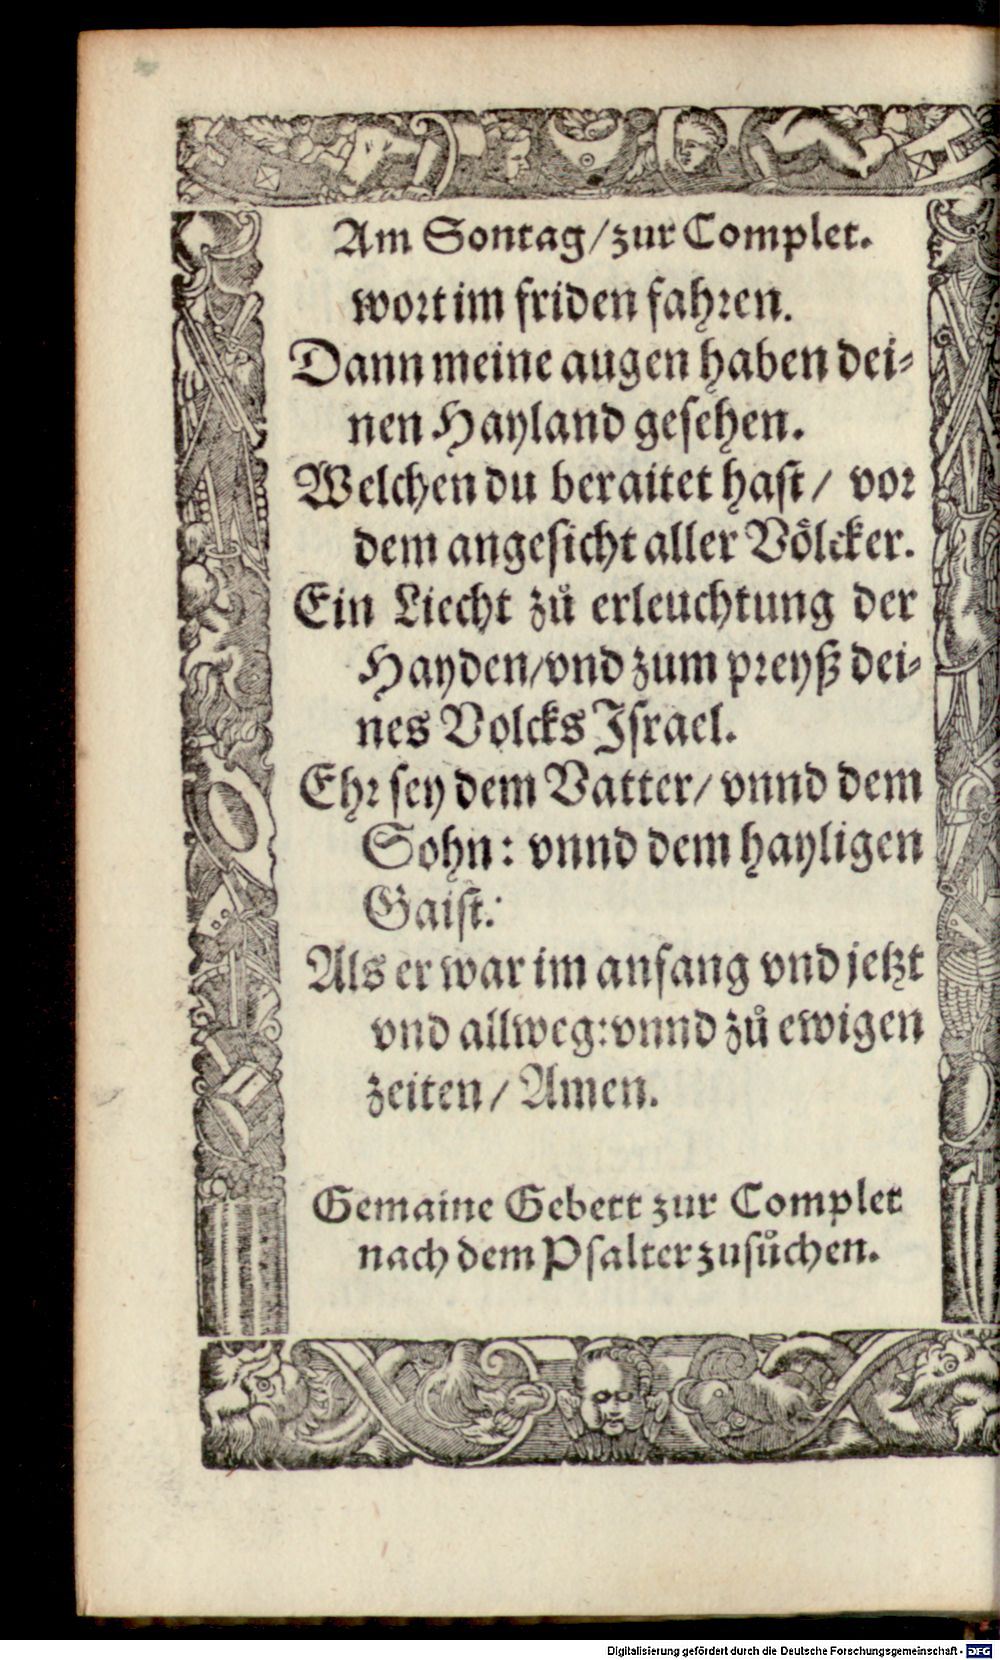 Am Sontag/zur Complet.
wort im friden fahren.
Dann meine augen haben dei⸗
nen Hayland gesehen.
Welchen du beraitet hast/ vor
dem angesicht aller Völcker.
Ein Liecht zů erleuchtung der
Hayden/vnd zum preyß dei⸗
nes Volcks Israel.
Ehr sey dem Vatter/ vnnd dem
Sohn: vnnd dem hayligen
Gaist:
Als er war im anfang vnd jetzt
vnd allweg: vnnd zů ewigen
zeiten/ Amen.
Gemaine Gebett zur Complet
nach dem Psalter zusůchen.
Digitalisierung gefördert durch die Deutsche Forschungsgemeinschaft - DFG